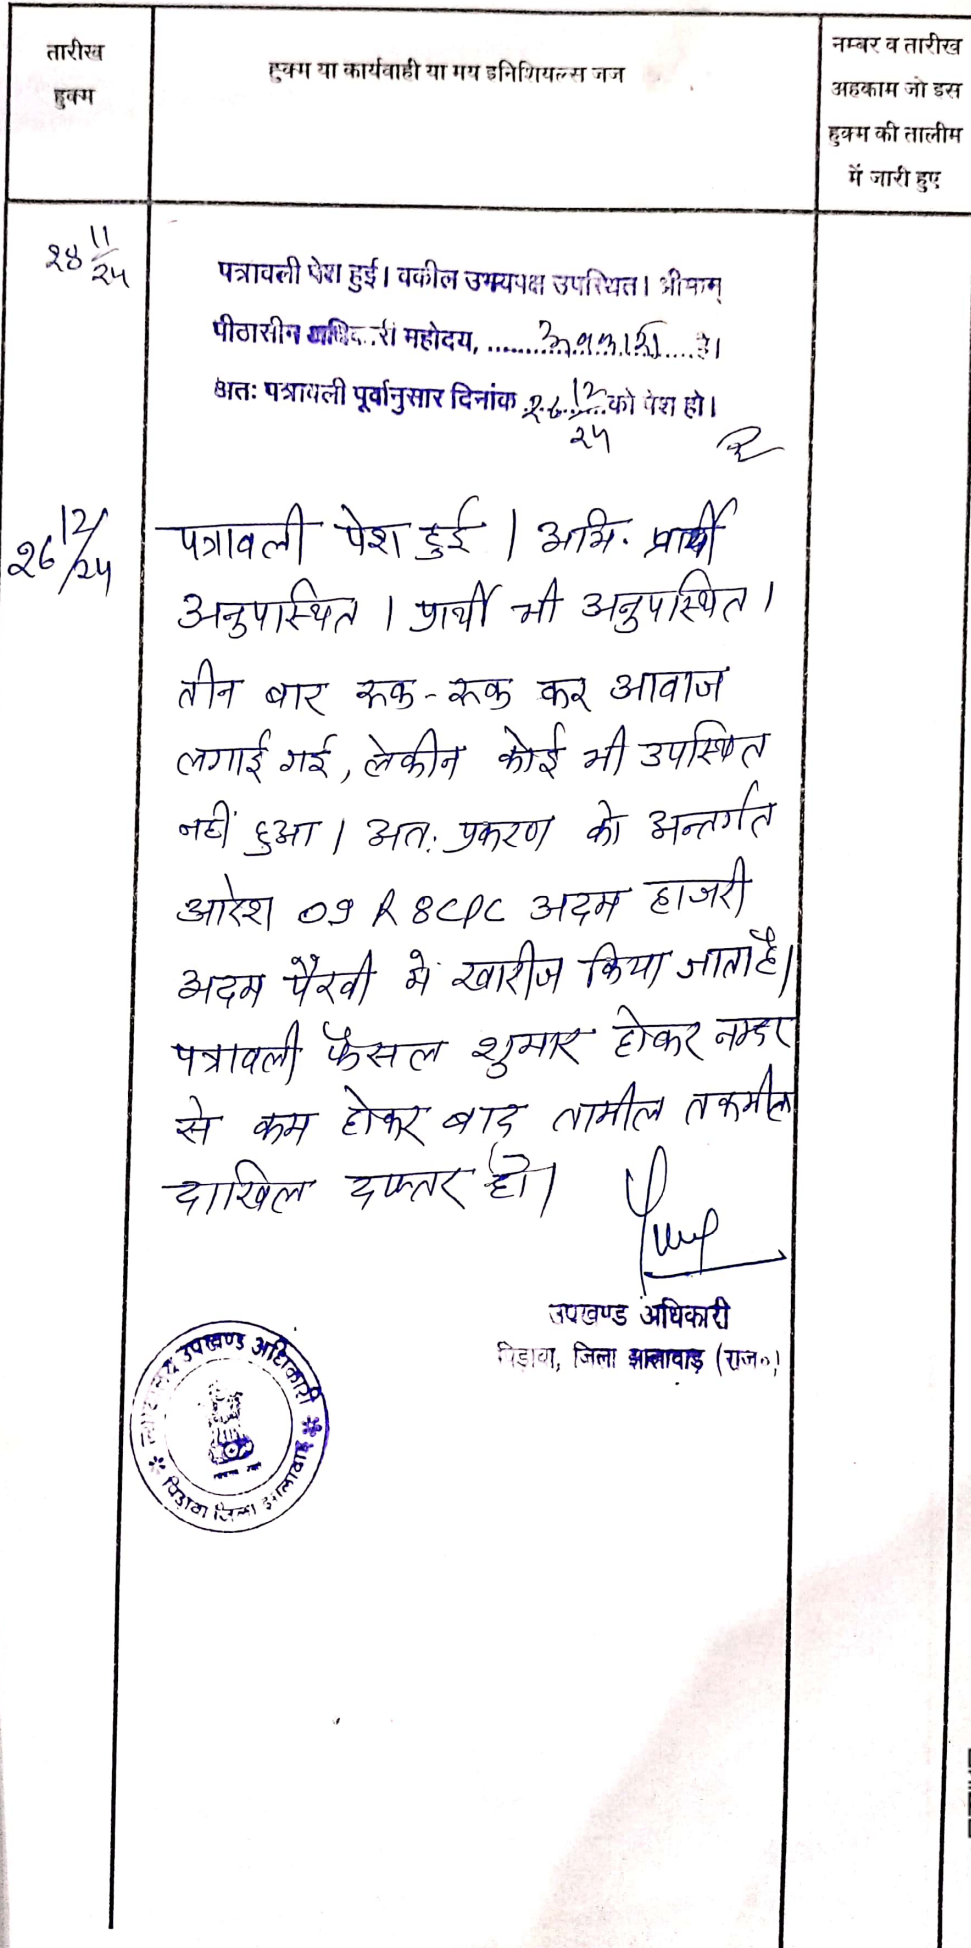 तारीख
हुक्म
हुक्म या कार्यवाही या मय इनिशियल्स जज
नम्बर व तारीख
अहकाम जो इस
हुक्म की तालीम
में जारी हुए
11
24
पत्रावली पेश हुई। वकील उभयपक्ष उपस्थित। श्रीमान्
पीठासीन अधिकारी महोदय, ............ है।
अतः पत्रावली पूर्वानुसार दिनांक 26 12 को पेश हो।
24
26 12/24
पत्रावली पेश हुई । अभि. प्रार्थी
अनुपस्थित । प्रार्थी भी अनुपस्थित ।
तीन बार रूक-रूक कर आवाज
लगाई गई, लेकीन कोई भी उपस्थित
नहीं हुआ । अतः प्रकरण को अन्तर्गत
आदेश 09 R 8 CPC अदम हाजरी
अदम पैरवी में खारीज किया जाता है।
पत्रावली फैसल शुमार होकर नम्बर
से कम होकर बाद तामील तकमील
दाखिल दफ्तर हो।
उपखण्ड अधिकारी
पिड़ावा, जिला झालावाड़ (राज०)
उपखण्ड अधिकारी
पिड़ावा जिला झालावाड़